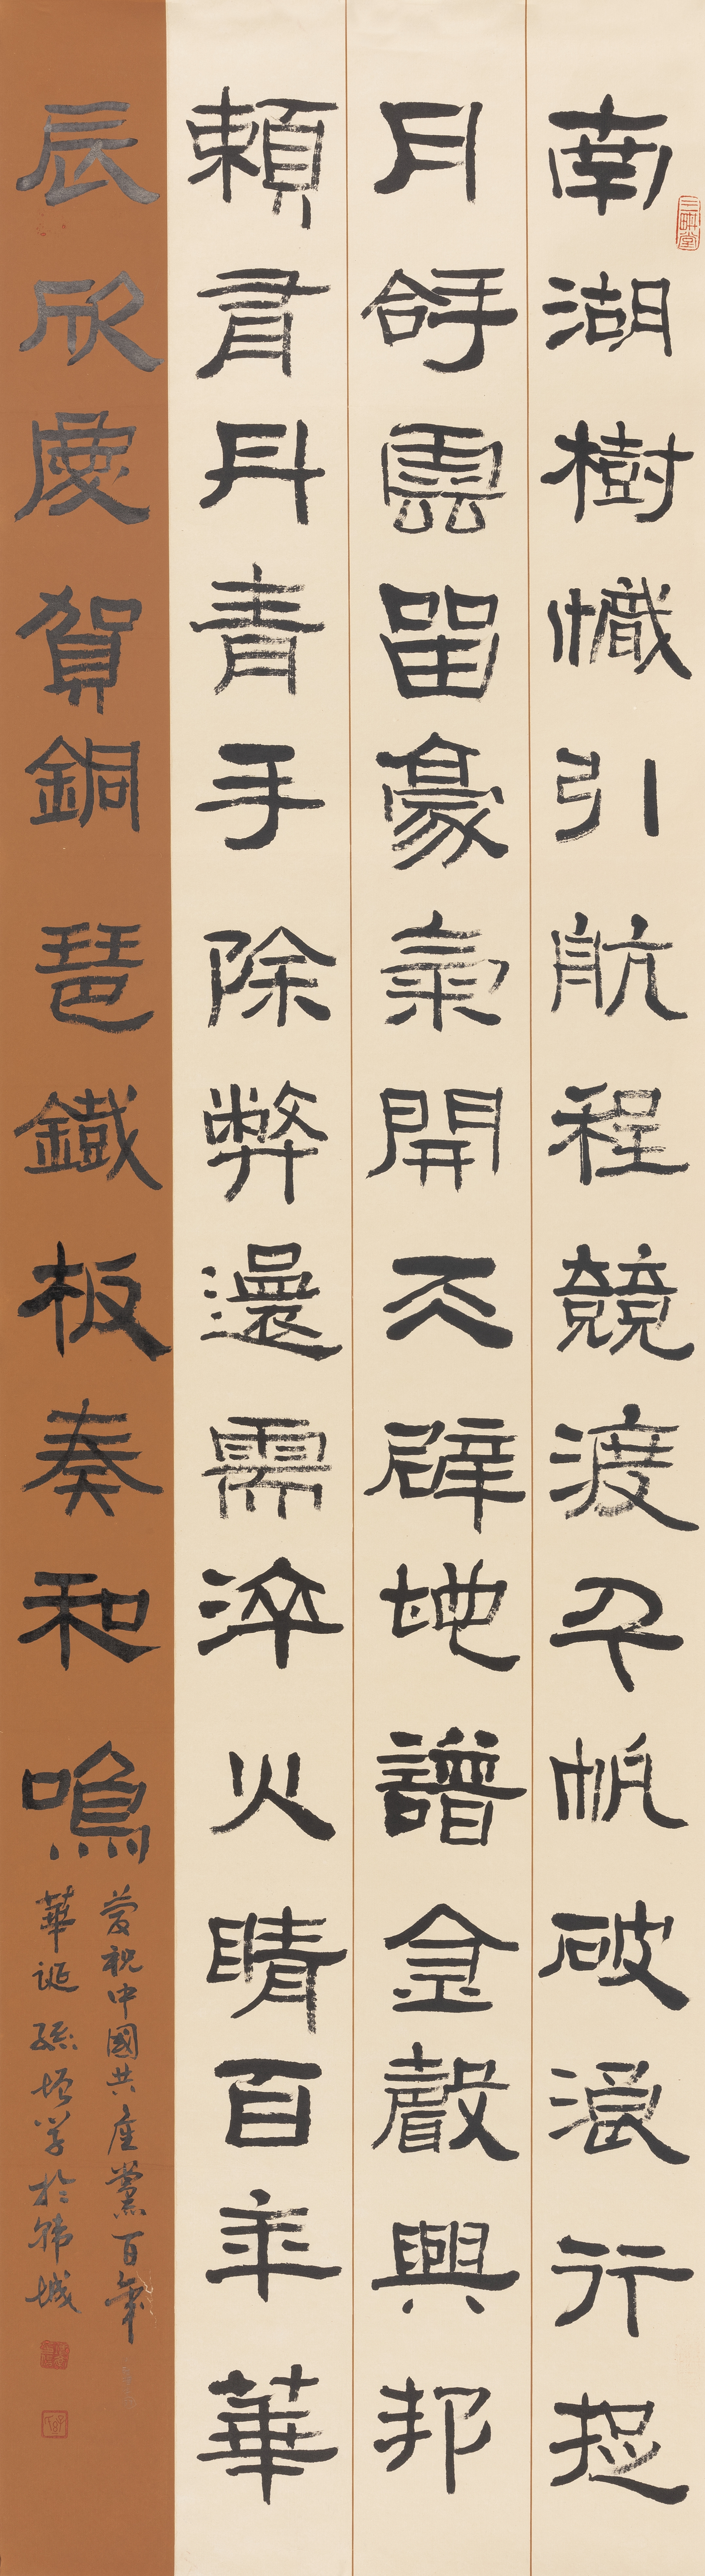 三畊堂
南湖樹幟引航程競渡千帆破浪行捉
月拿雲留豪氣開天辟地譜金聲興邦
賴有丹青手除弊還需淬火睛百年華
辰欣慶賀銅琶鐵板奏和鳴
慶祝中國共產黨百年
華誕孫學於韓城